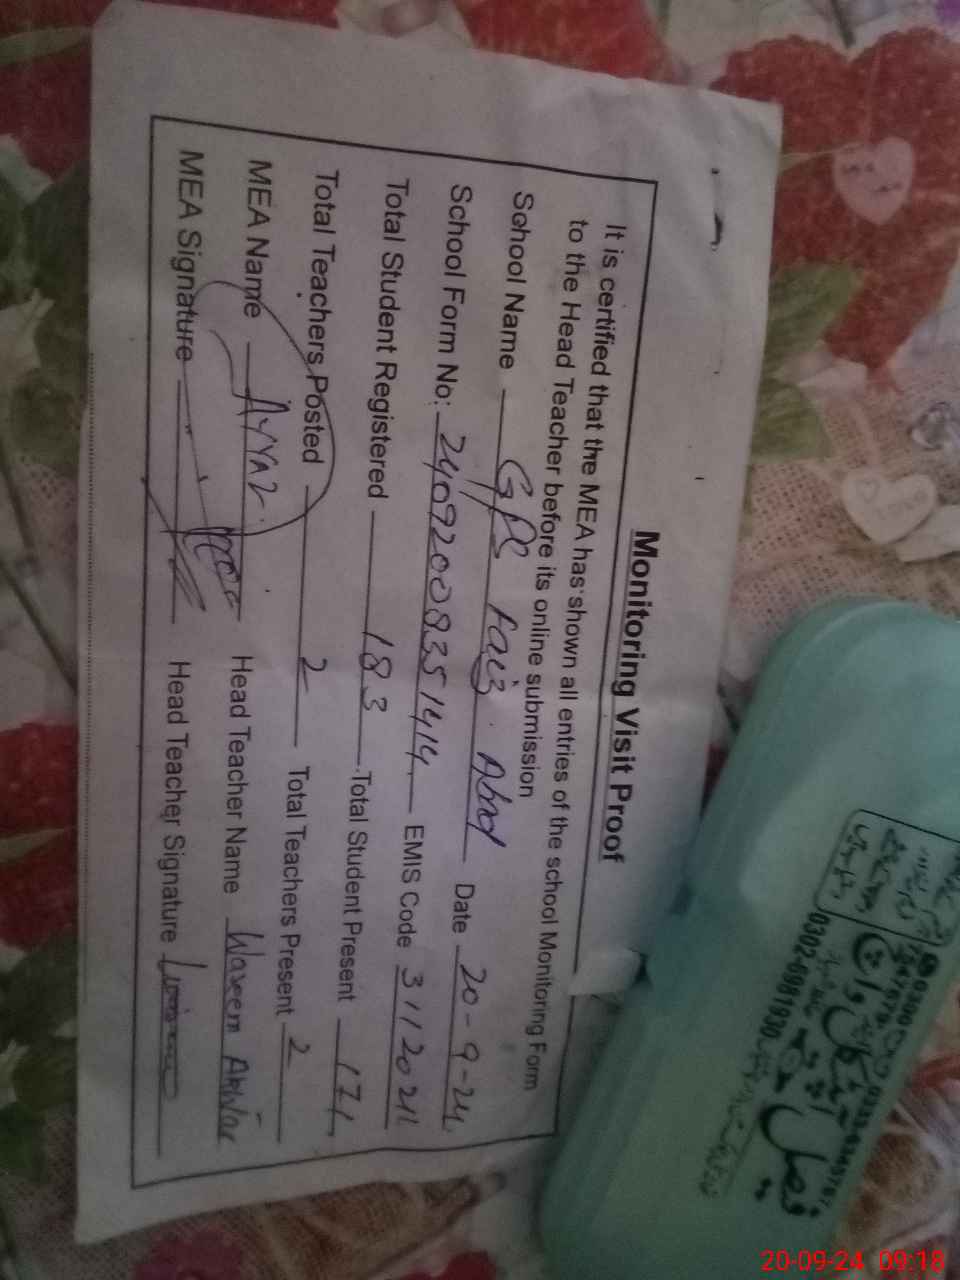 Monitoring Visit Proof
It is certified that the MEA has shown all entries of the school Monitoring Form
to the Head Teacher before its online submission
School Name GPS Faiz Abad Date 20-9-24
School Form No: 24092008351414 EMIS Code 31120211
Total Student Registered 183 Total Student Present 171
Total Teachers Posted 2 Total Teachers Present 2
MEA Name AYYAZ Head Teacher Name Waseem Akhtar
MEA Signature Head Teacher Signature
0302-6981930
فضل
20-09-24 09:18